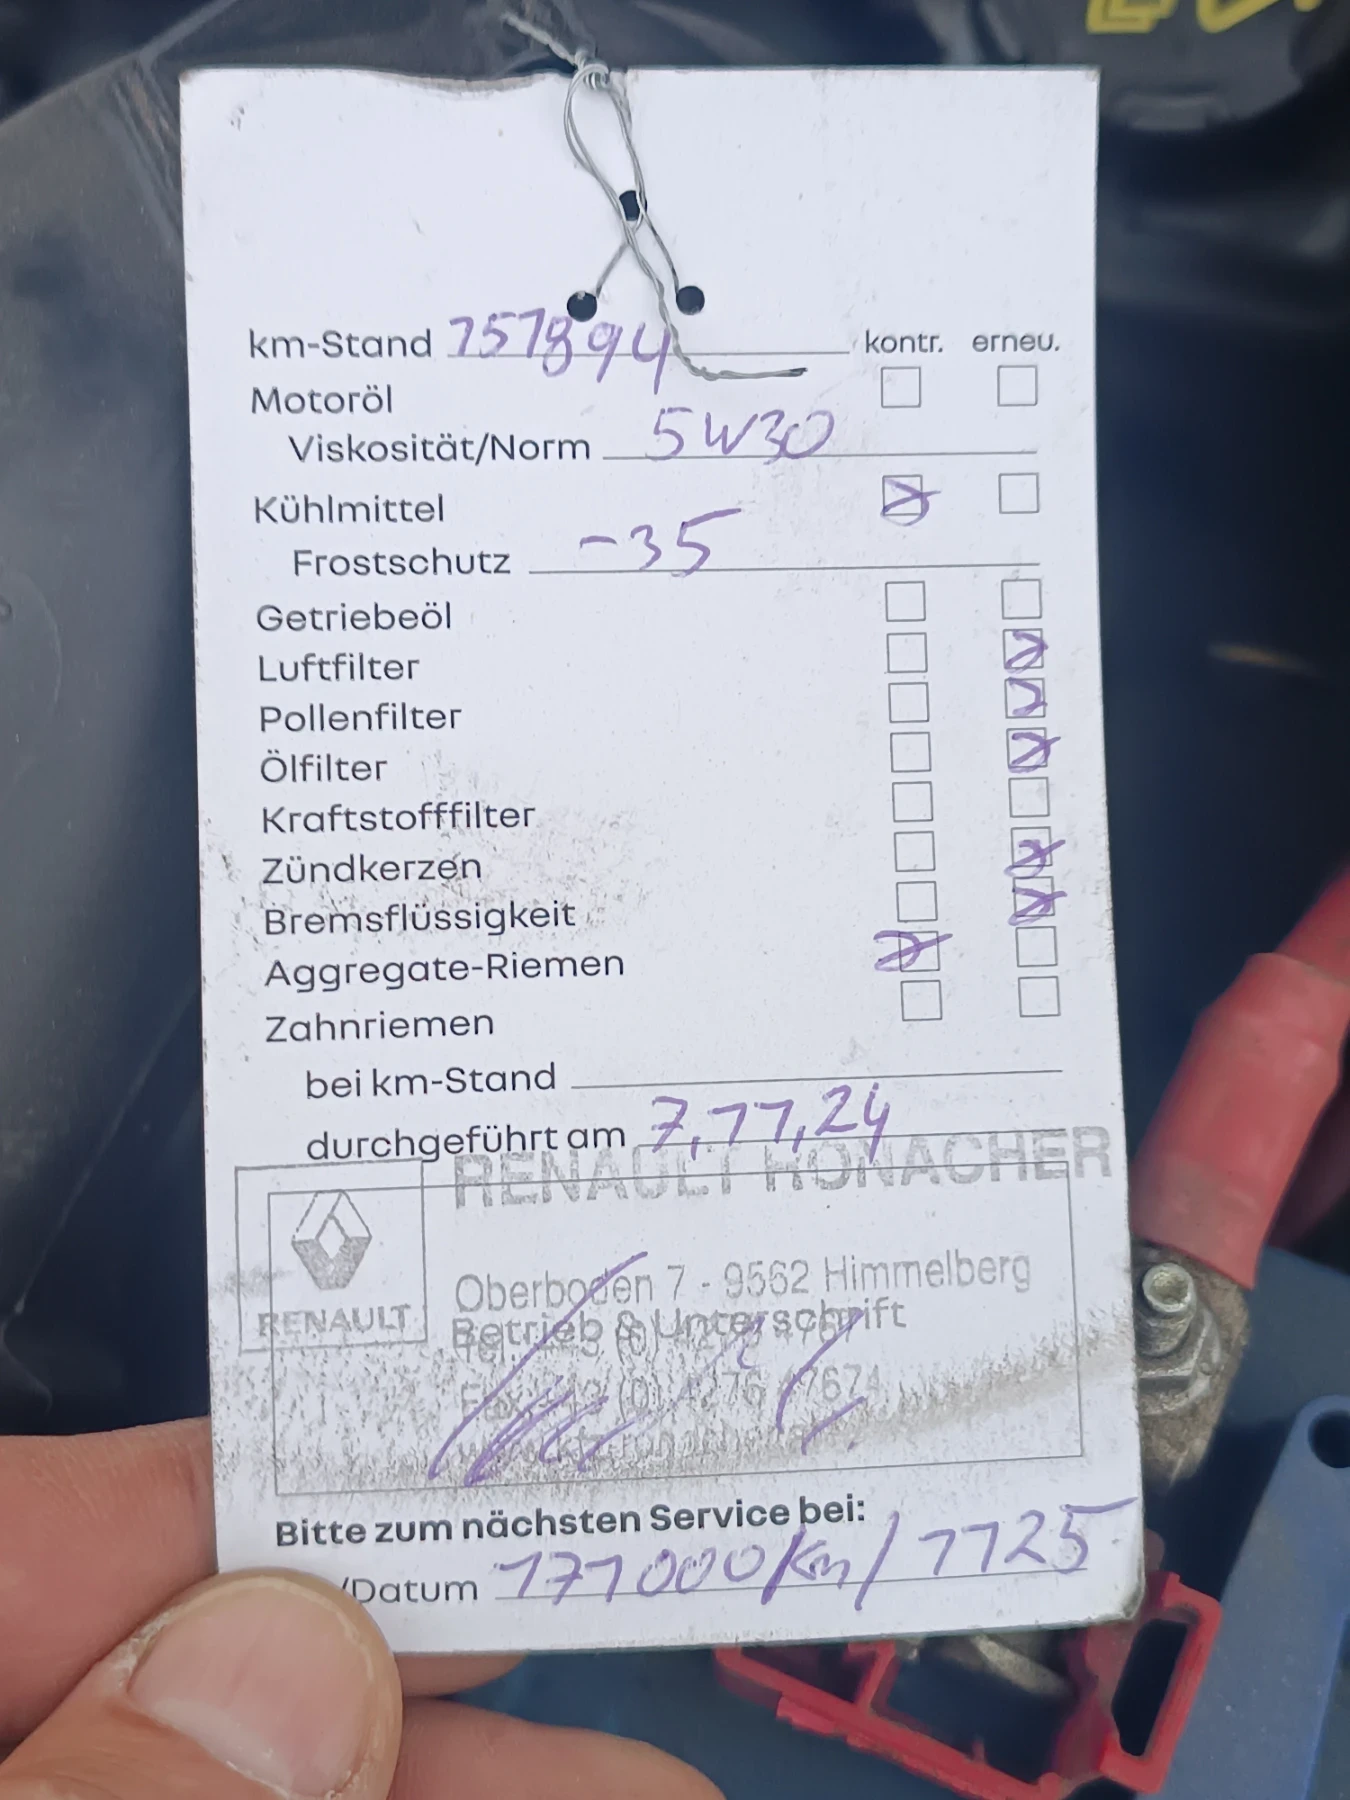 km-Stand 151894 kontr. erneu.
Motoröl
Viskosität/Norm 5W30
Kühlmittel
Frostschutz -35
Getriebeöl
Luftfilter
Pollenfilter
Ölfilter
Kraftstofffilter
Zündkerzen
Bremsflüssigkeit
Aggregate-Riemen
Zahnriemen
bei km-Stand
durchgeführt am 7,11,24
RENAULT RONACHER
Oberboden 7 - 9562 Himmelberg
RENAULT
Betrieb & Unterschrift
Bitte zum nächsten Service bei:
/Datum 171000 km / 1125